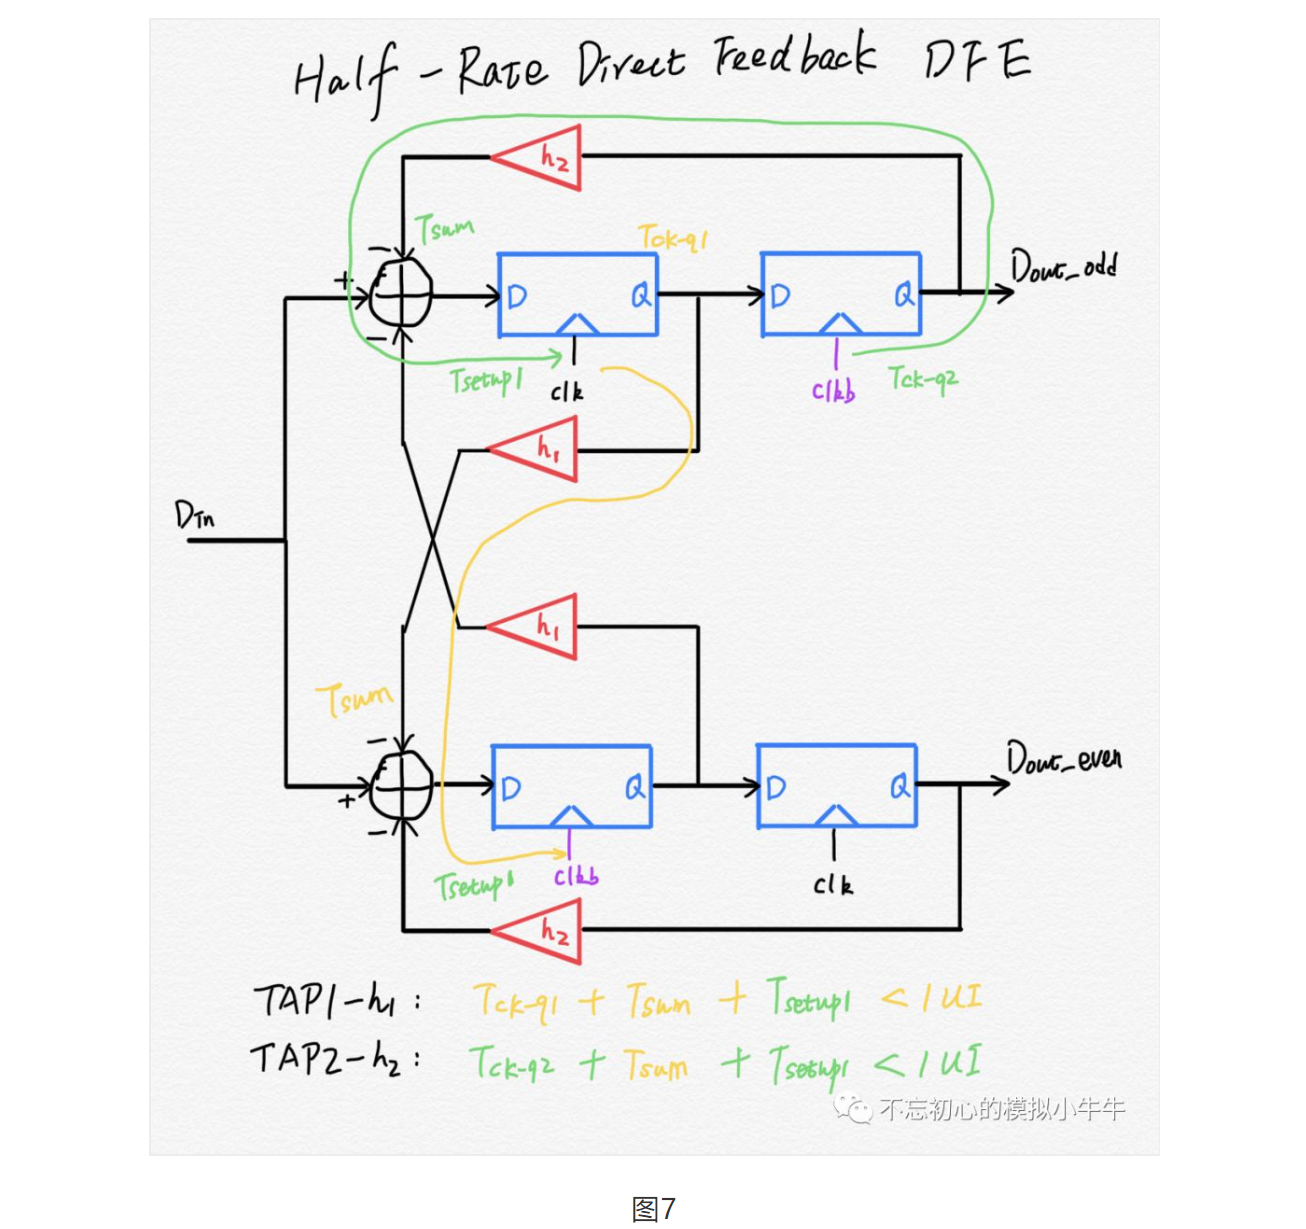 Half-Rate Direct Feedback DFE
h2
Tsum
Tck-q1
+
−
−
D Q
D Q
Dout_odd
Tsetup1
clk
clkb
Tck-q2
h1
DIn
h1
Tsum
−
+
−
D Q
D Q
Dout_even
Tsetup1
clkb
clk
h2
TAP1-h1: Tck-q1 + Tsum + Tsetup1 < 1UI
TAP2-h2: Tck-q2 + Tsum + Tsetup1 < 1UI
不忘初心的模拟小牛牛
图7